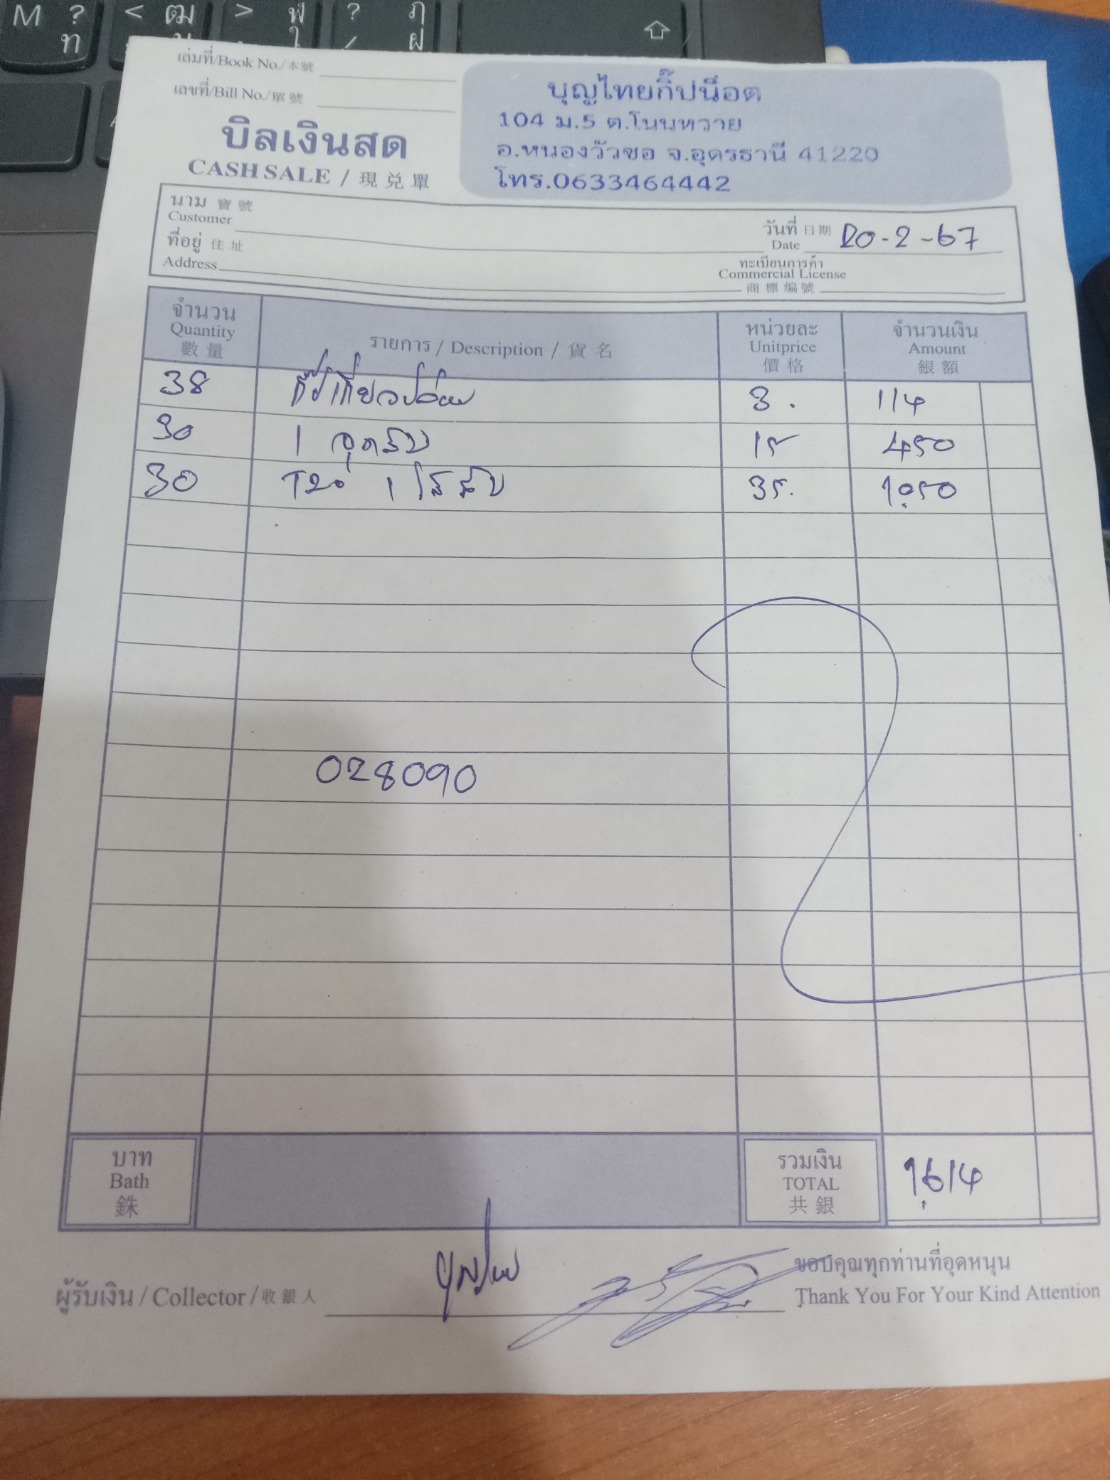 M ? ท < ฒ > ฬ ? ฦ
เล่มที่/Book No./本號
เลขที่/Bill No./單號
บิลเงินสด
CASH SALE / 現兑單
บุญไทยกิ๊ปน็อต
104 ม.5 ต.โนนหวาย
อ.หนองวัวซอ จ.อุดรธานี 41220
โทร.0633464442
นาม 寶號
Customer
วันที่ 日期
Date 20-2-67
ที่อยู่ 住址
Address
ทะเบียนการค้า
Commercial License
商標編號
จำนวน
Quantity
數量
รายการ / Description / 貨名
หน่วยละ
Unitprice
價格
จำนวนเงิน
Amount
銀額
38 3. 114
30 1 15 450
30 T20 1 35. 1,050
028090
บาท
Bath
銖
รวมเงิน
TOTAL
共銀
1,614
ผู้รับเงิน / Collector / 收銀人
ขอบคุณทุกท่านที่อุดหนุน
Thank You For Your Kind Attention